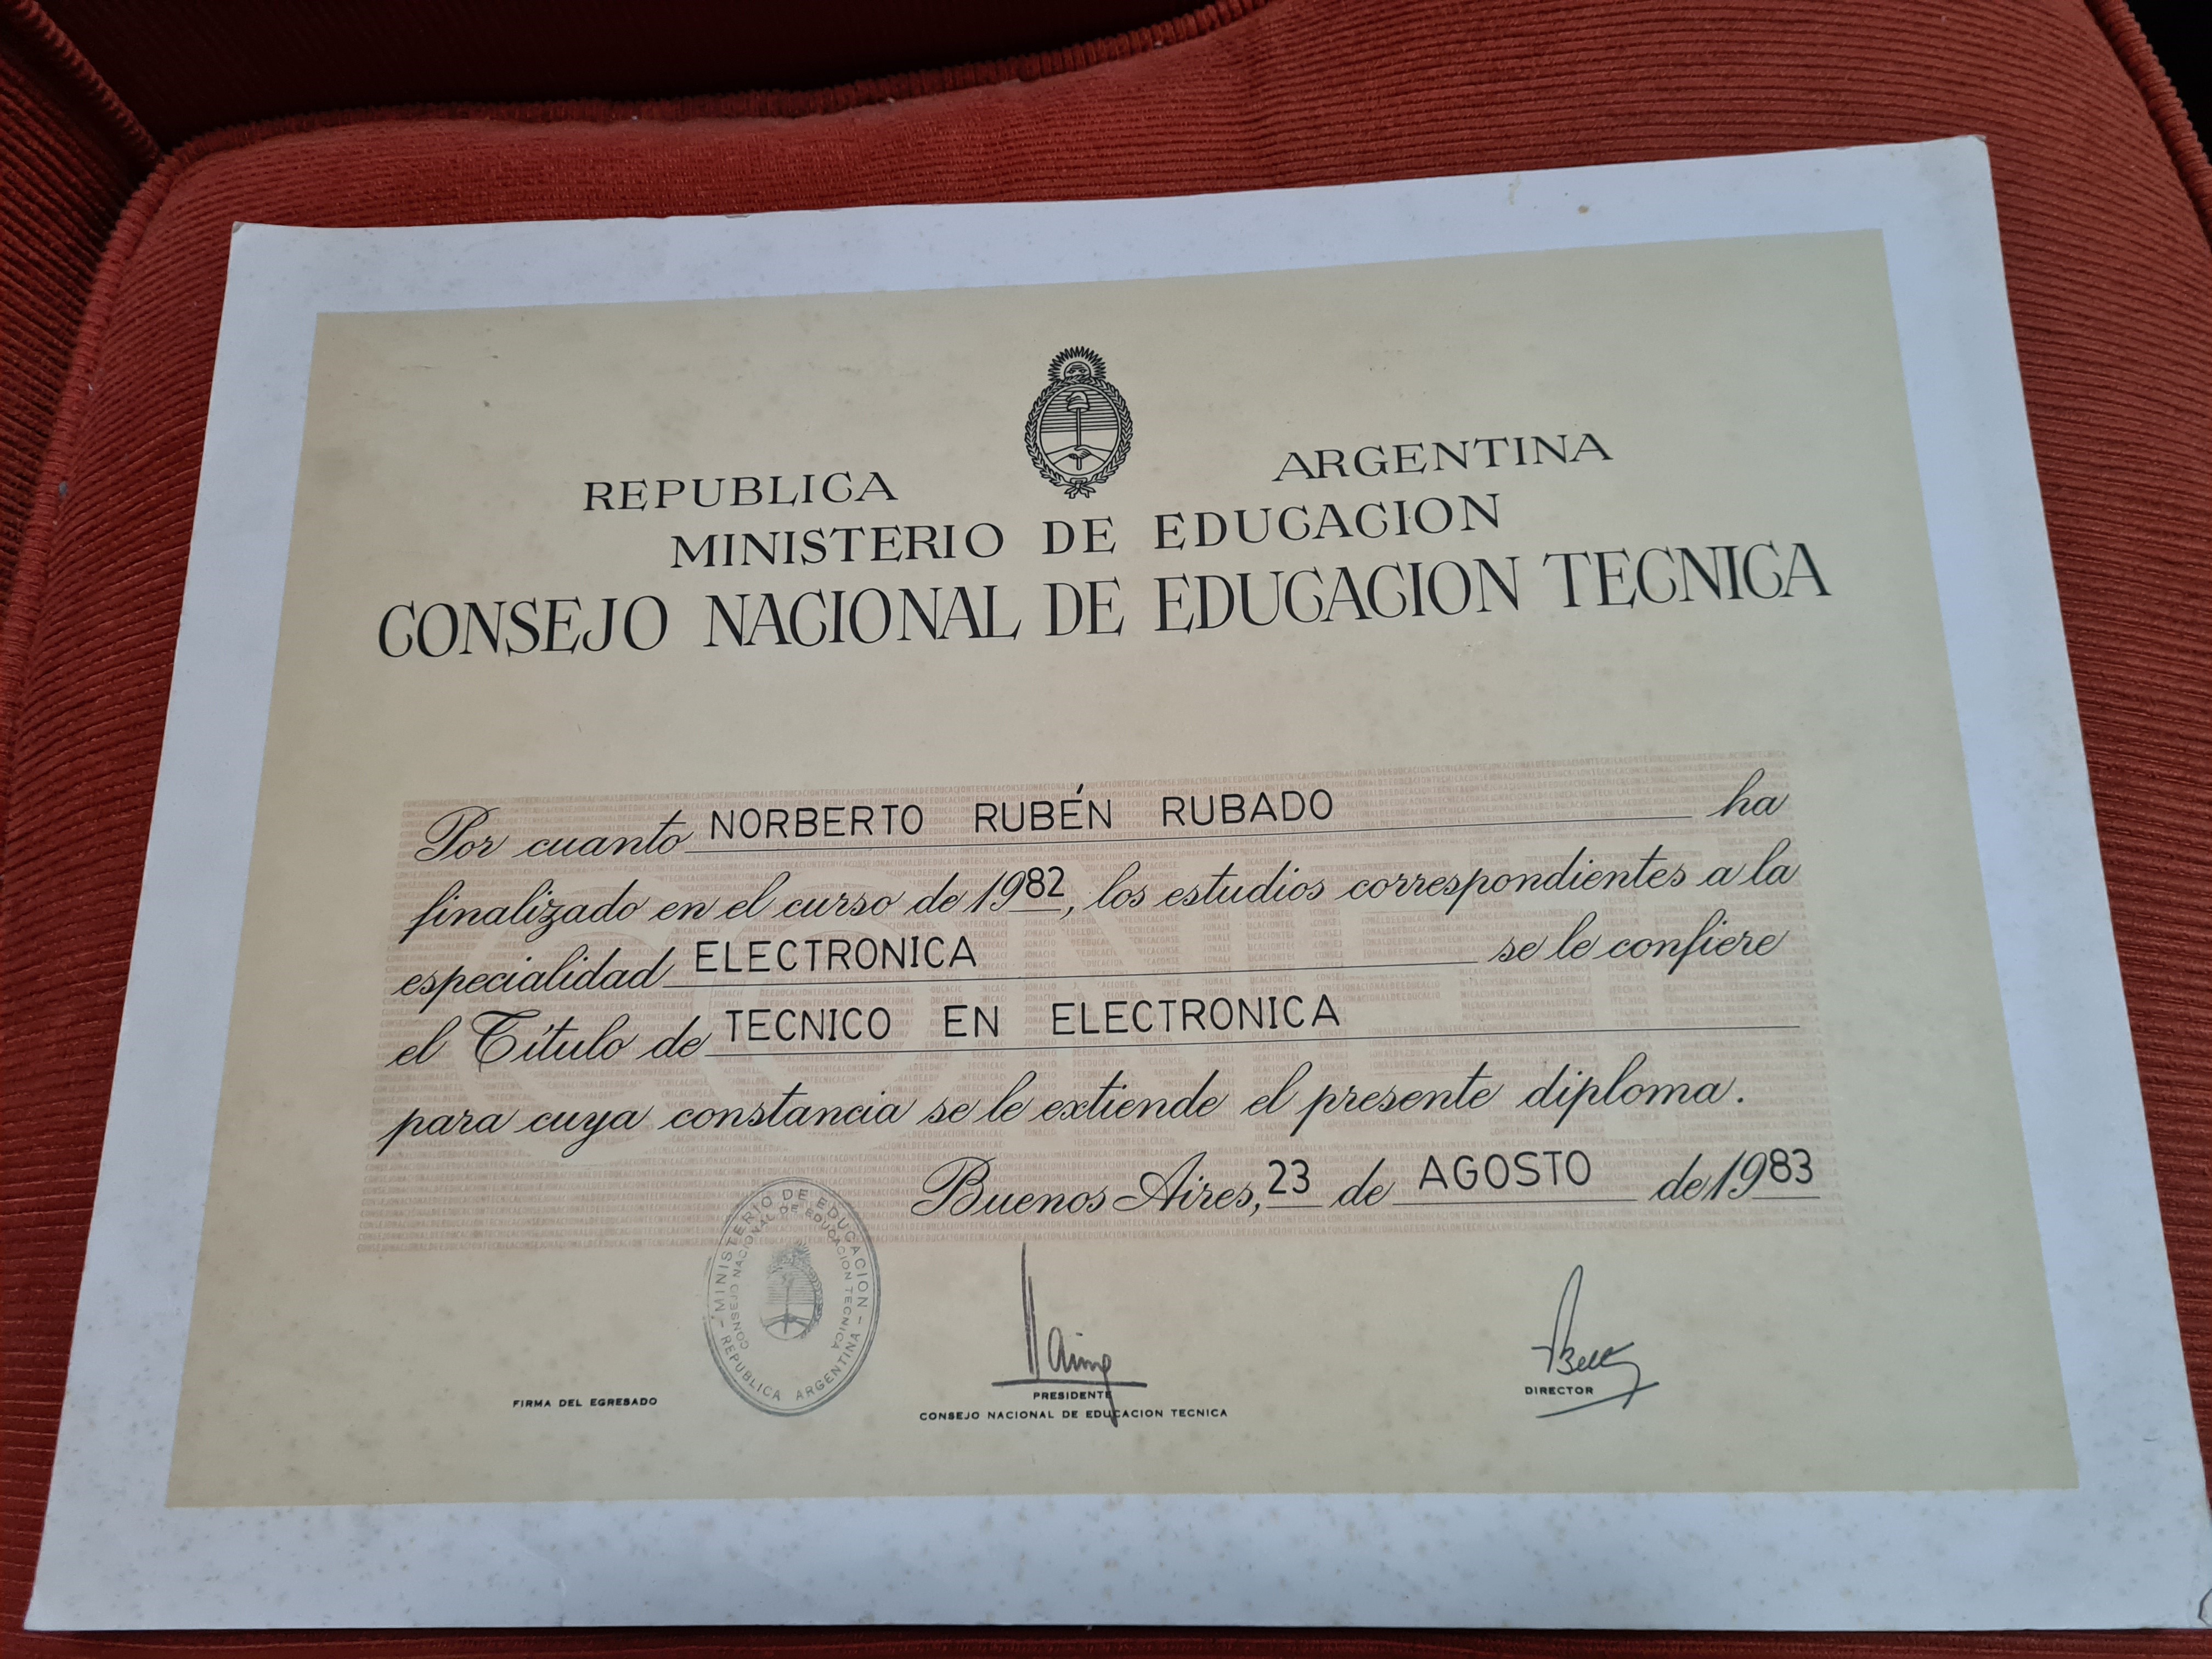 REPUBLICA ARGENTINA
MINISTERIO DE EDUCACION
CONSEJO NACIONAL DE EDUCACION TECNICA
Por cuanto NORBERTO RUBÉN RUBADO ha
finalizado en el curso de 1982, los estudios correspondientes a la
especialidad ELECTRONICA se le confiere
el Título de TECNICO EN ELECTRONICA
para cuya constancia se le extiende el presente diploma.
Buenos Aires, 23 de AGOSTO de 1983
MINISTERIO DE EDUCACION
CONSEJO NACIONAL DE EDUCACION TECNICA
REPUBLICA ARGENTINA
FIRMA DEL EGRESADO
PRESIDENTE
CONSEJO NACIONAL DE EDUCACION TECNICA
DIRECTOR